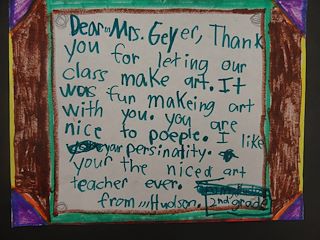 Dear Mrs. Geyer, Thank
you for leting our
class make art. It
was fun makeing art
with you. you are
nice to poeple. I like
your persinality.
your the niced art
teacher ever.
from,,, Hudson, 2nd grade